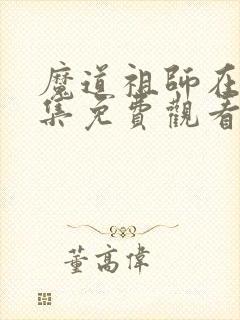 魔道祖師在
集免費觀看
董高偉